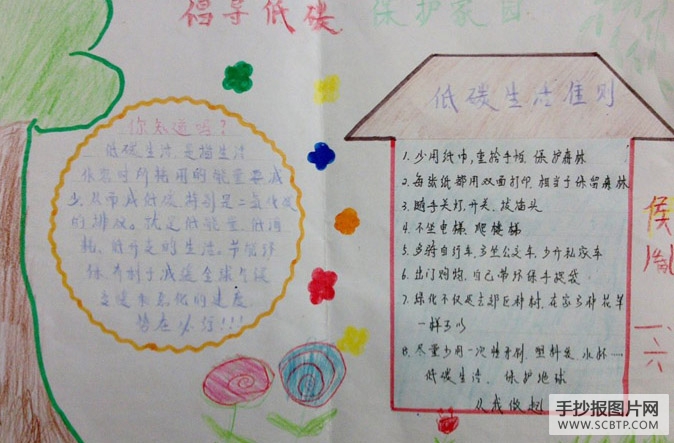 倡导低碳 保护家园
你知道吗?
低碳生活,是指生活
作息时所耗用的能量要减
少,从而减低碳,特别是二氧化碳
的排放。就是低能量、低消
耗、低开支的生活。节能环
保,有利于减缓全球气候
变暖和恶化的速度
势在必行!!!
低碳生活准则
1. 少用纸巾,重拾手帕,保护森林
2. 每张纸都用双面打印,相当于保留森林
3. 随手关灯、开关、拔插头
4. 不坐电梯 爬楼梯
5. 多骑自行车,多坐公交车,少开私家车
6. 出门购物,自己带环保手提袋
7. 绿化不仅是去郊区种树,在家多种花草
一样可以
8. 尽量少用一次性牙刷、塑料袋、水杯……
低碳生活、保护地球
从我做起
侯
一、六
手抄报图片网
WWW.SCBTP.COM